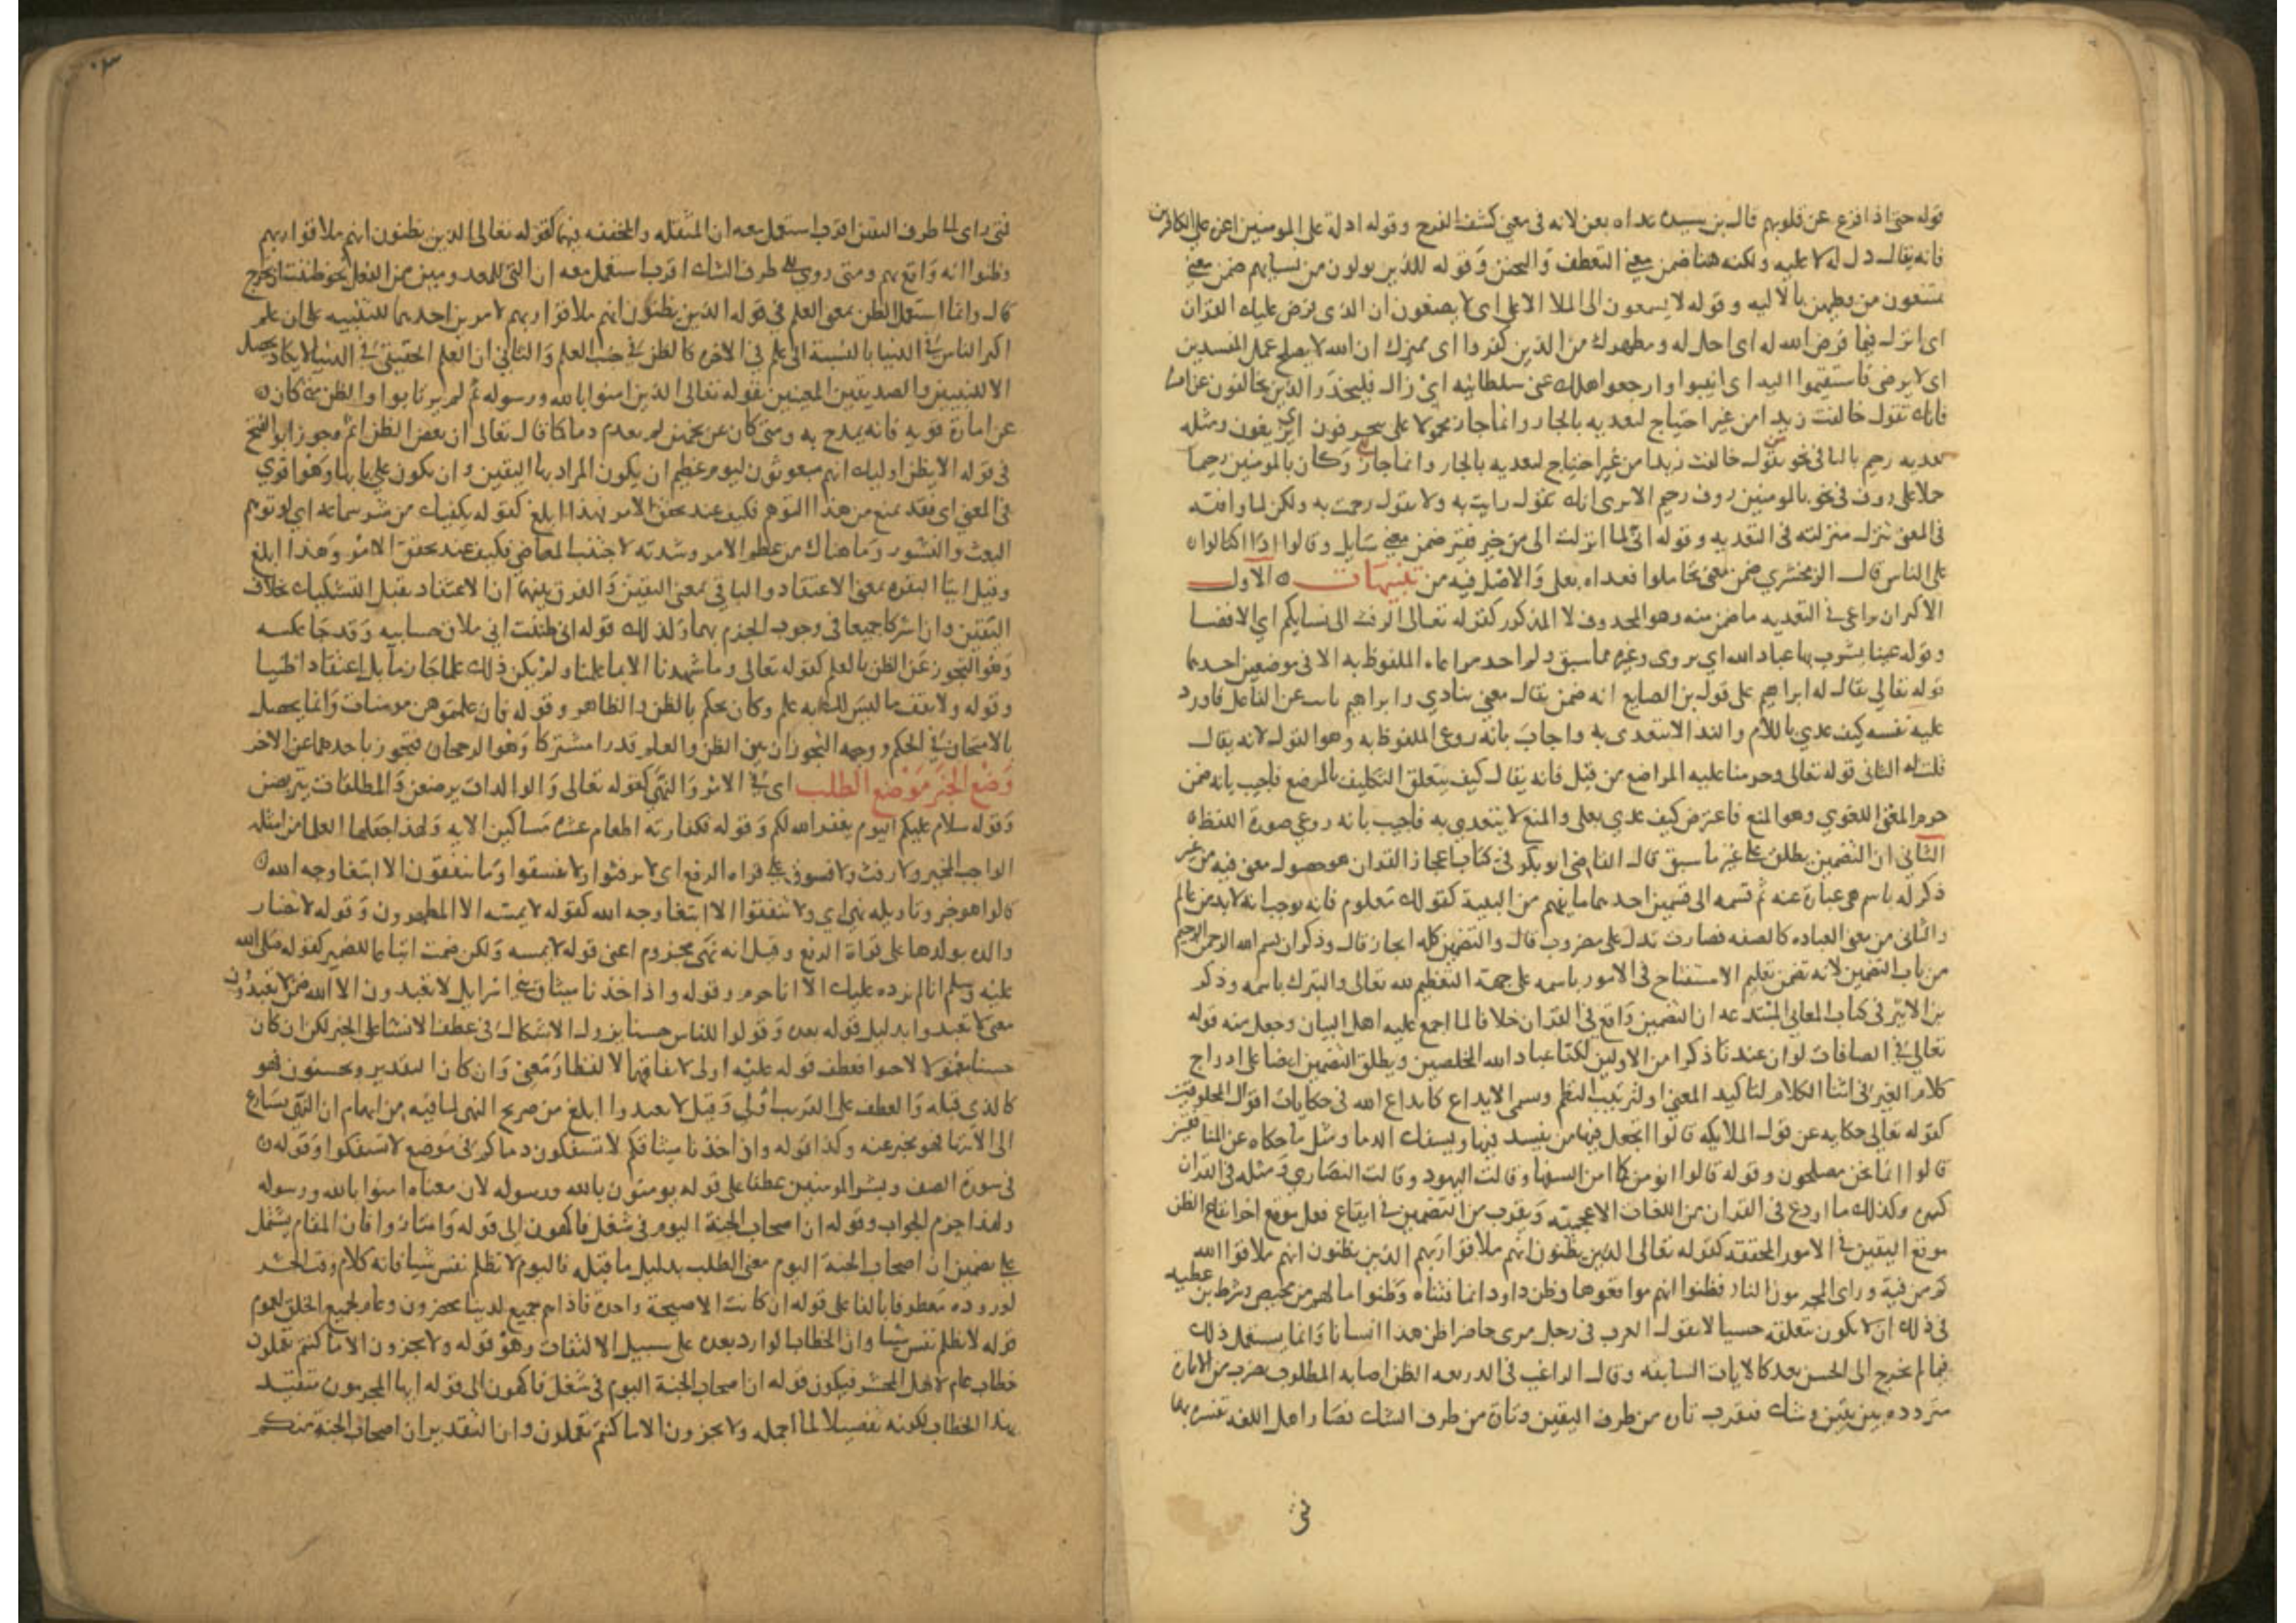 قوله حتى اذا فزع عن قلوبهم قال بن سيده عداه بعن لانه في معنى كشف الفزع وقوله اذلة على المومنين اعزة على الكافرين
فانه يقال ذل له لا عليه ولكنه هنا ضمن معنى التعطف والتحنن وقوله للذين يولون من نسايهم ضمن معنى
يمتنعون من وطيهن بالالية وقوله لا يسمعون الى الملا الاعلى اي لا يصغون ان الذي فرض عليك القران
اي انزل فيما فرض الله له اي احل له ومطهرك من الذين كفروا اي مميزك ان الله لا يصلح عمل المفسدين
اي لا يرضى فاستقيموا اليه اي انيبوا وارجعوا هلك عني سلطانيه اي زال فليحذر الذين يخالفون عن امره
فانك تقول خالفت زيدا من غير احتياج لتعديه بالجار وانما جاز محمولا على ينحرفون او يزيغون ومثله
تعديه رحيم بالبا في نحو تقول خالفت زيدا من غير احتياج لتعديه بالجار وانما جاز وكان بالمومنين رحيما
حملا على روف في نحو بالمومنين روف رحيم الا ترى انك تقول رافت به ولا تقول رحمت به ولكن لما وافقه
في المعنى تنزل منزلته في التعديه وقوله اني لما انزلت الي من خير فقير ضمن معنى سايل وقالوا اذا اكتالوا
على الناس قال الزمخشري ضمن معنى تحاملوا فعداه بعلى والاصل فيه من تنبيهات الاول
الاكثر ان يراعى في التعديه ما ضمن منه وهو المحذوف لا المذكور كقوله تعالى الرفث الى نسايكم اي الافضا
وقوله عينا يشرب بها عباد الله اي يروى وغيره مما سبق ولم احد مراعاه الملفوظ به الا في موضعين احدهما
قوله تعالى يقال له ابراهيم على قول بن الصايغ انه ضمن يقال معنى ينادي وابراهيم نايب عن الفاعل فاورد
عليه نفسه كيف عدي باللام والندا لا يتعدى به واجاب بانه روعي الملفوظ به وهو القول لانه يقال
قلت له الثاني قوله تعالى وحرمنا عليه المراضع من قبل فانه يقال كيف يتعلق التكليف بالمرضع فاجيب بانه ضمن
حرم المعنى اللغوي وهو المنع فاعترض كيف عدي بعلى والمنع لا يتعدى به فاجيب بانه روعي صورة اللفظ
الثاني ان التضمين يطلق على غير ما سبق قال القاضي ابو بكر في كتاب اعجاز القران هو حصول معنى فيه من غير
ذكر له باسم هي عبارة عنه ثم قسمه الى قسمين احدهما ما يفهم من البنية كقولك معلوم فانه يوجب انه لا بد من عالم
والثاني من معنى العباره كالصفه فضارب تدل على مضروب قال والتضمين كله ايجاز قال وذكر ان بسم الله الرحمن الرحيم
من باب التضمين لانه تضمن تعليم الاستفتاح في الامور باسمه على جهة التعظيم لله تعالى والتبرك باسمه وذكر
بن الاثير في كتاب المعاني المبتدعه ان التضمين واقع في القران خلافا لما اجمع عليه اهل البيان وجعل منه قوله
تعالى في الصافات لو ان عندنا ذكرا من الاولين لكنا عباد الله المخلصين ويطلق التضمين ايضا على ادراج
كلام الغير في اثنا الكلام لتاكيد المعنى او لترتيب النظم وسمى الابداع كابداع الله في حكايات اقوال المخلوقين
كقوله تعالى حكايه عن قول الملايكه قالوا اتجعل فيها من يفسد فيها ويسفك الدما ومثل ما حكاه عن المنافقين
قالوا انما نحن مصلحون وقوله قالوا انومن كما امن السفها وقالت اليهود وقالت النصارى ومثله في القران
كثير وكذلك ما اودع في القران من اللغات الاعجميه ويقرب من التضمين في ايقاع فعل موقع اخر ايقاع الظن
موقع اليقين في الامور المحققه كقوله تعالى الذين يظنون انهم ملاقوا ربهم الذين يظنون انهم ملاقوا الله
كم من فية وراى المجرمون النار فظنوا انهم مواقعوها وظن داود انما فتناه وظنوا ما لهم من محيص وشرط بن عطيه
في ذلك ان لا يكون متعلقه حسيا لا تقول العرب في رجل مرى حاضر اظن هذا انسانا وانما يستعمل ذلك
فيما لم يخرج الى الحس بعد كالايات السابقه وقال الراغب في الذريعه الظن اصابه المطلوب بضرب من الامارة
متردده بين يقين وشك فتقرب تارة من طرف اليقين وتارة من طرف الشك فصار اهل اللغه تفسره بهما
فمتى
فمتى راى لما طرف اليقين اقرب استعمل معه ان المثقله والمخففه فيها كقوله تعالى الذين يظنون انهم ملاقوا ربهم
وظنوا انه واقع بهم ومتى روي الى طرف الشك اقرب استعمل معه ان التي للمعدومين من الفعل نحو ظننت ان يخرج
قال وانما استعمل الظن بمعنى العلم في قوله الذين يظنون انهم ملاقوا ربهم لامرين احدهما للتنبيه على ان علم
اكثر الناس في الدنيا بالنسبة الى علم في الاخره كالظن في جنب العلم والثاني ان العلم الحقيقي في الدنيا لا يكاد يحصل
الا للنبيين والصديقين المعنيين بقوله تعالى الذين امنوا بالله ورسوله ثم لم يرتابوا والظن متى كان
عن امارة قويه فانه يمدح به ومتى كان عن تخمين لم يعتد به وذم كما قال تعالى ان بعض الظن اثم وجوز ابو الفتح
في قوله الا يظن اوليك انهم مبعوثون ليوم عظيم ان يكون المراد بها اليقين وان يكون على بابها وهو اقوي
في المعنى اي فقد يمنع من هذا التوهم فكيف عند تحقق الامر فهذا ابلغ كقوله يكفيك من شر سماعه اي لو توهم
البعث والنشور وما هناك من عظم الامر وشدته لاجتنب المعاصي فكيف عند تحقق الامر وهذا ابلغ
وقيل ايتا البقره بمعنى الاعتقاد والباقي بمعنى اليقين والفرق بينهما ان الاعتقاد يقبل التشكيك بخلاف
اليقين وان اشتركا جميعا في وجوب الجزم بهما وكذلك قوله اني ظننت اني ملاق حسابيه وقد جا عكسه
وهو التجوز عن الظن بالعلم كقوله تعالى وما شهدنا الا بما علمنا ولم يكن ذلك علما جازما بل اعتقادا ظنيا
وقوله ولا تقف ما ليس لك به علم وكان يحكم بالظن والظاهر وقوله فان علمتموهن مومنات وانما يحصل
بالامتحان في الحكم ووجه التجوز ان بين الظن والعلم قدرا مشتركا وهو الرجحان فتجوز باحدهما عن الاخر
وضع الخبر موضع الطلب اي في الامر والنهي كقوله تعالى والوالدات يرضعن والمطلقات يتربصن
وقوله سلام عليكم اليوم يغفر الله لكم وقوله فكفارته اطعام عشرة مساكين الايه ولهذا جعلها العلما من امثله
الواجب المخير ولا رفث ولا فسوق على قراه الرفع اي لا ترفثوا ولا تفسقوا وما تنفقون الا ابتغا وجه الله
قالوا هو خبر وتاويله نهي اي ولا تنفقوا الا ابتغا وجه الله كقوله لا يمسه الا المطهرون وقوله لا تضار
والده بولدها على قراة الرفع وقيل انه نهى مجزوم اعني قوله لا يمسه ولكن ضمت اتباعا للضمير كقوله صلى الله
عليه وسلم انا لم نرده عليك الا انا حرم وقوله واذ اخذنا ميثاق بني اسرايل لا تعبدون الا الله ضمن لا تعبدون
معنى لا تعبدوا بدليل قوله بعده وقولوا للناس حسنا يزول الاشكال في عطف الانشا على الخبر لكن ان كان
كالذي قبله والعطف على القريب اولى وقيل لا تعبدوا ابلغ من صريح النهي لما فيه من ايهام ان النهي يسارع
الى الانتها فهو مخبر عنه وكذا قوله واذ اخذنا ميثاقكم لا تسفكون دماكم في موضع لا تسفكوا وقوله
في سورة الصف وبشر المومنين عطفا على قوله يومنون بالله ورسوله لان معناه امنوا بالله ورسوله
ولهذا جزم الجواب وقوله ان اصحاب الجنة اليوم في شغل فاكهون الى قوله وامتازوا فان المقام يشتمل
على تضمين ان اصحاب الجنة اليوم معنى الطلب بدليل ما قبله فاليوم لا تظلم نفس شيا فانه كلام وقت الحشر
لوروده معطوفا بالفا على قوله ان كانت الا صيحة واحدة فاذا هم جميع لدينا محضرون وعام لجميع الخلق لعموم
قوله لا تظلم نفس شيا وان الخطاب الوارد بعده على سبيل الالتفات وهو قوله ولا تجزون الا ما كنتم تعملون
خطاب عام لاهل المحشر فيكون قوله ان اصحاب الجنة اليوم في شغل فاكهون الى قوله ايها المجرمون متقيد
بهذا الخطاب لكونه تفصيلا لما اجمله ولا تجزون الا ما كنتم تعملون وان التقدير ان اصحاب الجنة منكم